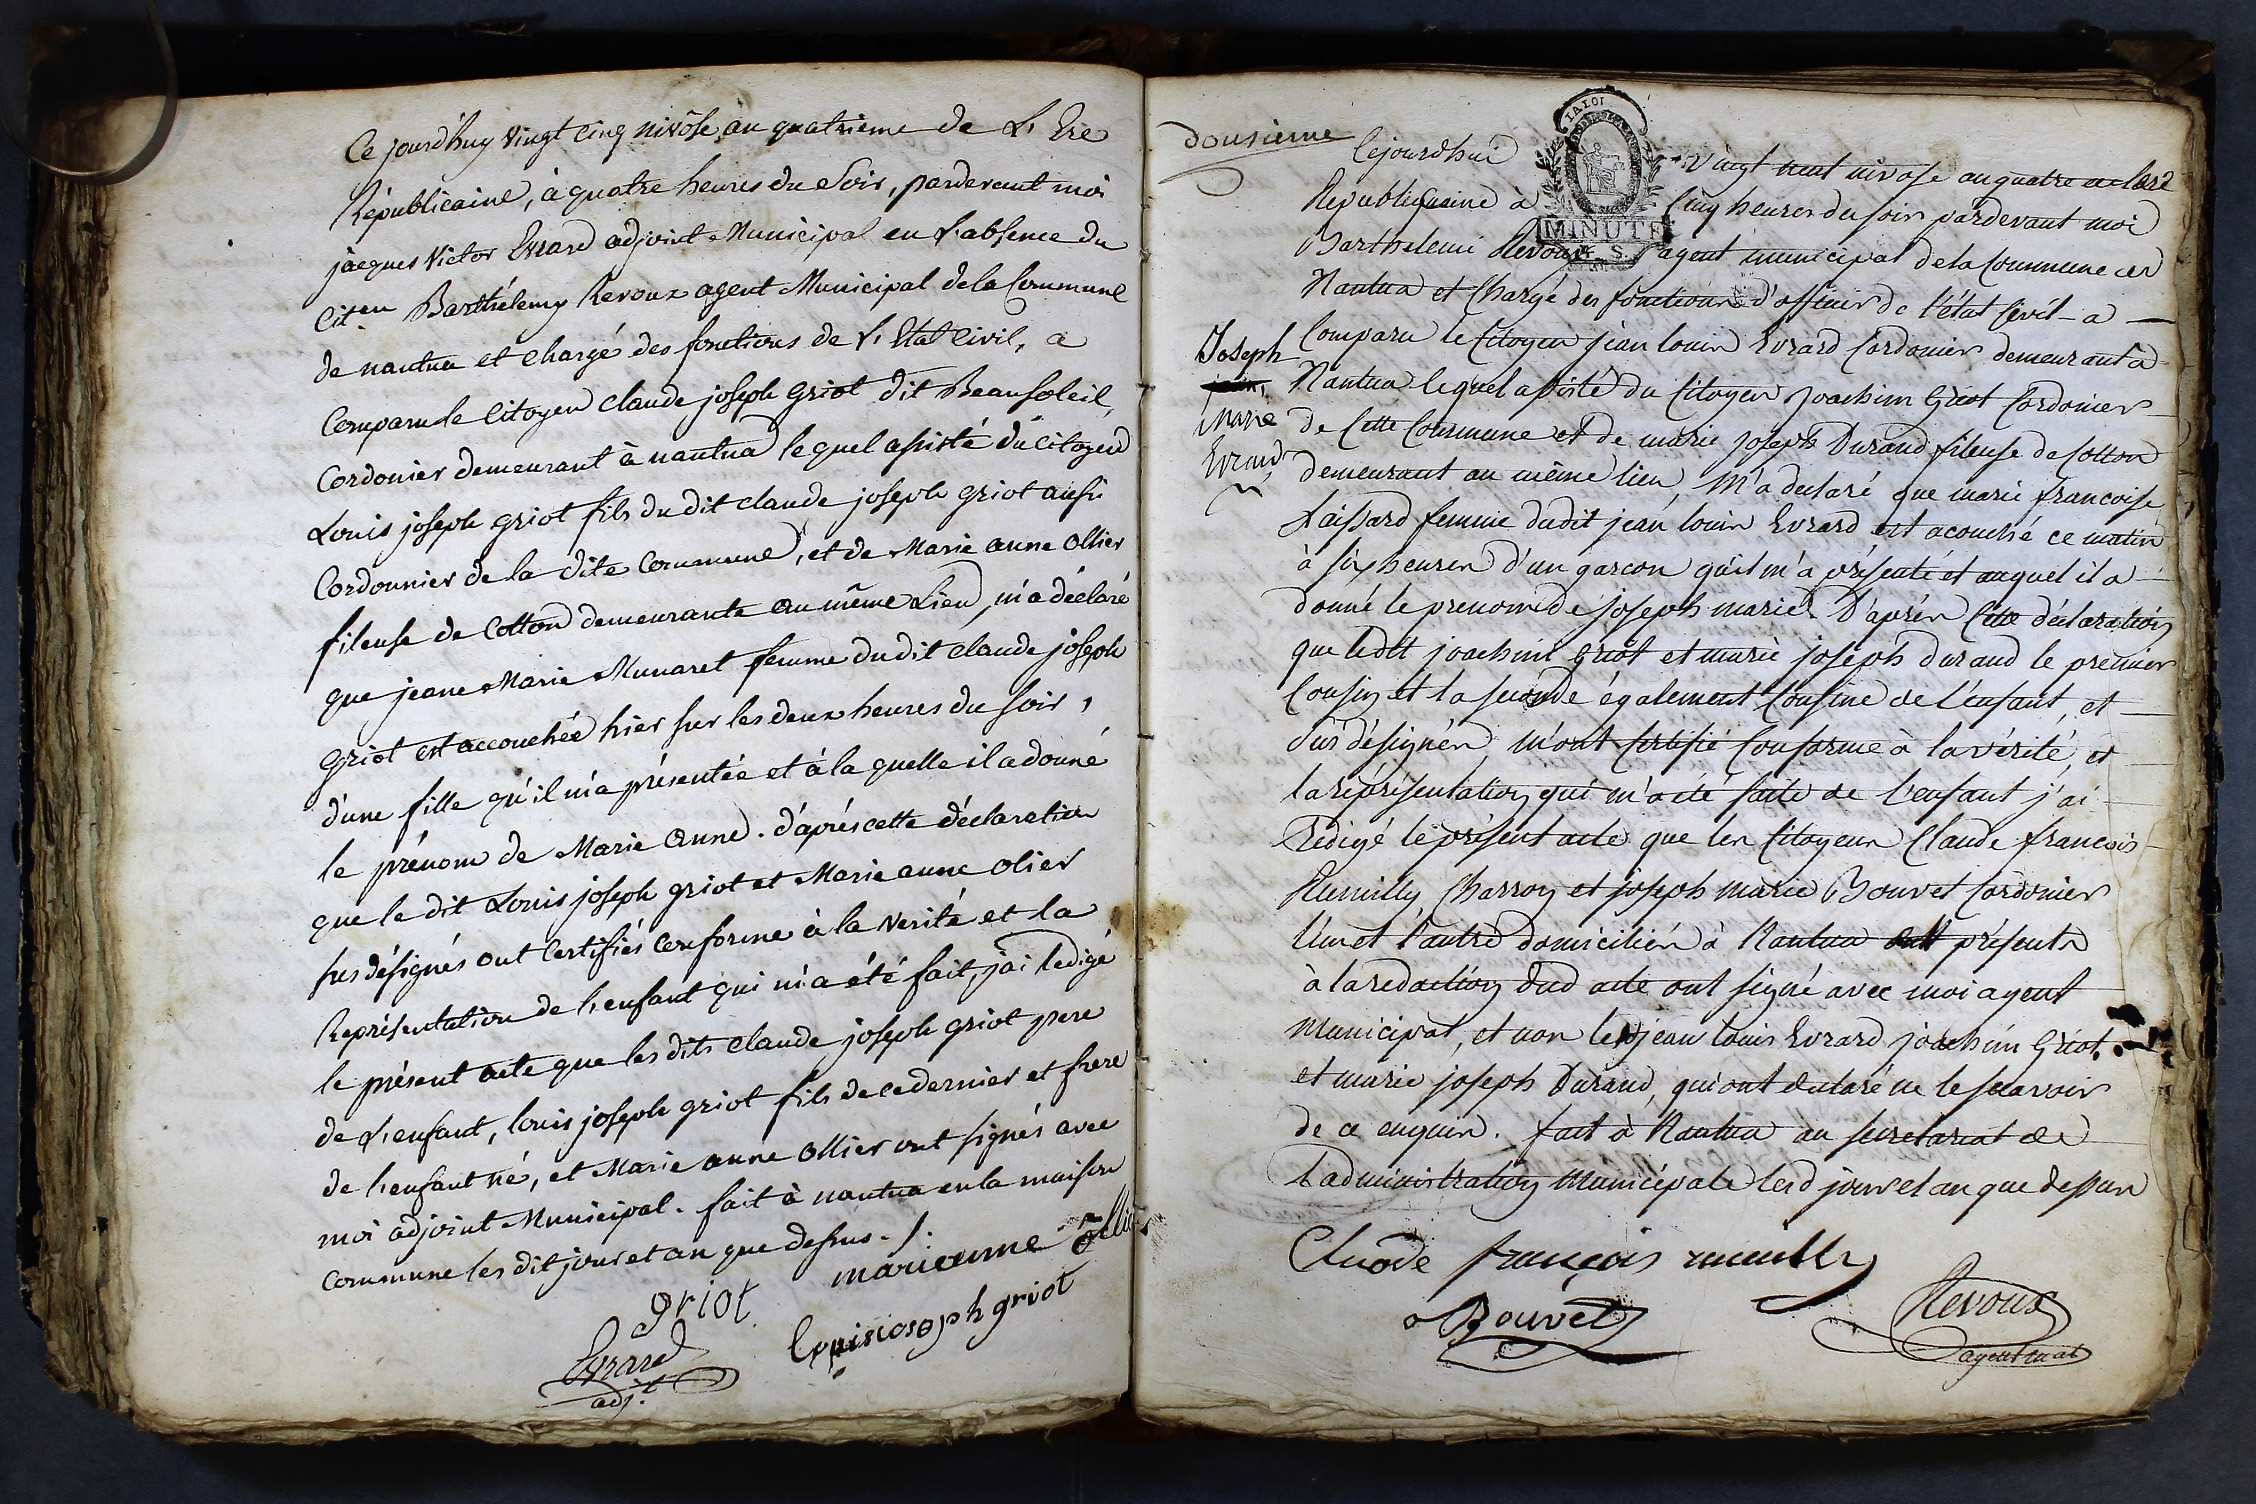 Ce jourd'huy vingt cinq nivôse an quatrieme de L'Ere
Républicaine, à quatre heures du Soir, pardevant moi
jacques Victor Evrard adjoint Municipal en L'absence du
Cit.en Barthélemy Revoux agent Municipal de la Commune
de nantua et chargé des fonctions de L'Etat Civil, a
Comparu le Citoyen claude joseph Griot dit Beausoleil,
Cordonier demeurant à nantua lequel assisté du Citoyen
Louis joseph griot fils du dit claude joseph griot aussi
Cordonnier de la dite Commune, et de Marie anne Ollier
fileuse de Cotton demeurante au même Lieu, m'a déclaré
que jeane Marie Munaret femme du dit claude joseph
griot est accouchée hier sur les deux heures du soir,
d'une fille qu'il m'a présentée et à la quelle il a donné
le prénom de Marie Anne. d'après cette déclaration
que le dit Louis joseph griot et Marie anne Olier
susdésignés ont Certifiés Conforme à la Verité et la
Représentation de l'enfant qui m'a été fait, j'ai Redigé
le présent acte que les dits claude joseph griot pere
de L'enfant, louis joseph griot fils de ce dernier et frere
de l'enfant né, et Marie anne Ollier ont signés avec
moi adjoint Municipal. fait à nantua en la maison
Commune les dit jour et an que dessus./.
griot marianne ollier
Evrard louis ioseph griot
adj.t
dousieme
IA LOI
MINUTE
Cejourdhui vingt neuf nivose an quatre de lere
Republiquaine à Cinq heures du soir pardevant moi
Barthelemi Revoux agent municipal de la Commune de
Nantua et Chargé des fonctions d'officier de l'état Civil a
Joseph
Marie
Evrard
Comparu le Citoyen jean louis Evrard Cordonier demeurant a
Nantua lequel assisté du Citoyen joachim Griot Cordonier
de Cette Commune et de marie joseph Durand fileuse de Cotton
demeurant au même lieu, M'a declaré que marie francoise
Laissard femme dudit jean louis Evrard est acouché ce matin
à six heures d'un garcon qu'il m'a présenté et auquel il a
donné le prenom de joseph marie. D'après Cette déclaration
que ledit joachim griot et marie joseph durand le premier
Cousin et la seconde également Cousine de l'enfant, et
sus désignés m'ont Certifié Conforme à la vérité, et
la réprésentation qui m'a été faite de l'enfant j'ai
Redigé le présent acte que les Citoyens Claude francois
Rumilly Charron et joseph marie Bouvet Cordonier
l'un et l'autre domiciliés à Nantua présents
à la redaction dud acte ont signé avec moi agent
Municipal, et non les jean louis Evrard joachim Griot
et marie joseph Durand, qui ont declaré ne le scavoir
de ce enquis. fait à Nantua au secretariat de
l'administration Municipale lesd jour et an que dessus
Cluode françois rumilly
Bouvet Revoux
agent mal